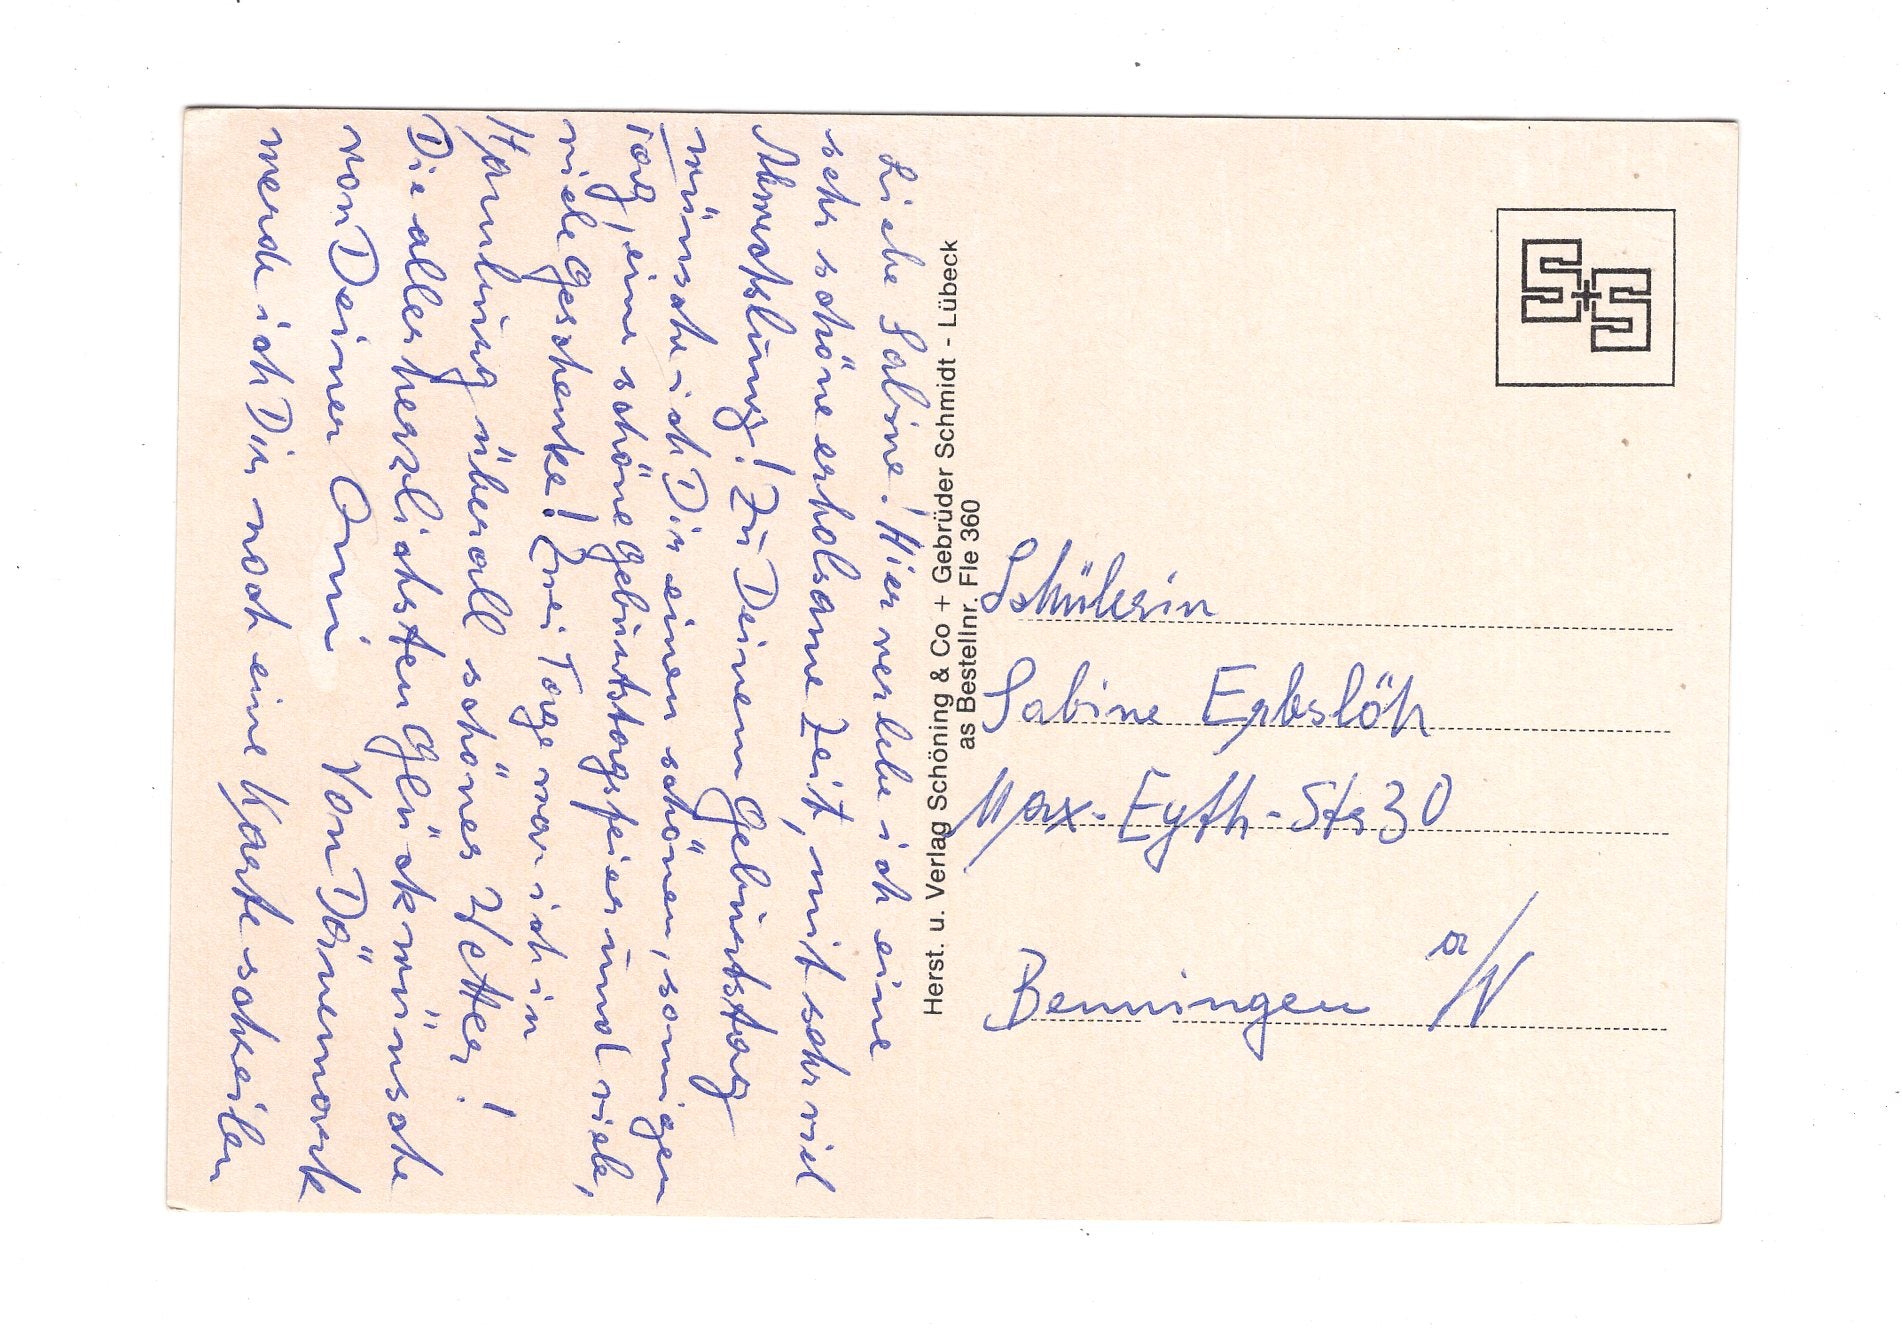 Liebe Sabine! Hier verlebe ich eine
sehr schöne erholsame Zeit, mit sehr viel
Abwechslung! Zu Deinem Geburtstag
wünsche ich Dir einen schönen, sonnigen
Tag, eine schöne Geburtstagsfeier und viele,
viele Geschenke! Zwei Tage war ich in
Harrling überall schönes Wetter!
Die allerherzlichsten Glückwünsche
von Deiner Omi Von Dänemark
werde ich Dir noch eine Karte schreiben
Herst. u. Verlag Schöning & Co + Gebrüder Schmidt - Lübeck
as Bestellnr. Fle 360
S+S
Schülerin
Sabine Erbslöh
Max-Eyth-Str 30
Benningen a/N